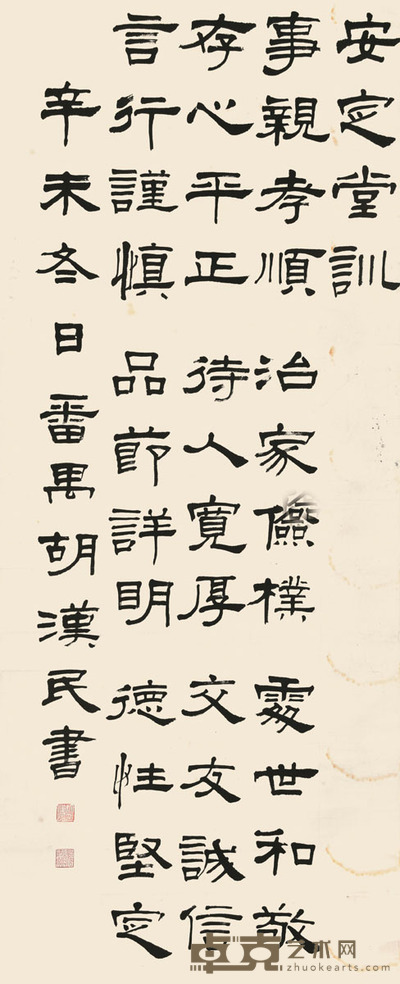 安定堂訓
事親孝順 治家儉樸 處世和敬
存心平正 待人寬厚 交友誠信
言行謹慎 品節詳明 德性堅定
辛未冬日番禺胡漢民書
卓克艺术网
www.zhuokearts.com